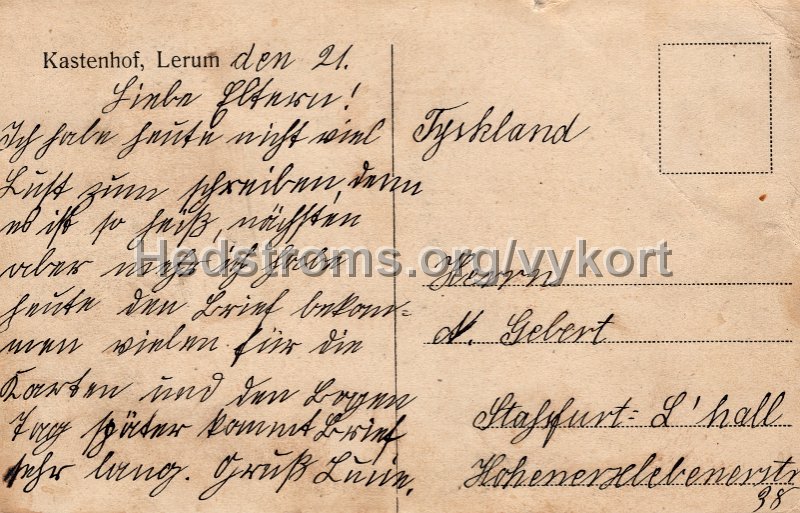 Kastenhof, Lerum den 21.
Liebe Eltern!
Ich habe heute nicht viel
Lust zum schreiben, denn
es ist so heiß, nächsten
aber mehr ich habe
heute den Brief bekom=
men vielen für die
Karten und den Bogen
Tag später kommt Brief
sehr lang. Gruß Lucie.
Tyskland
Herrn
A. Gebert
Stassfurt= L'hall
Hohenerxlebenerstr
38
Hedstroms.org/vykort